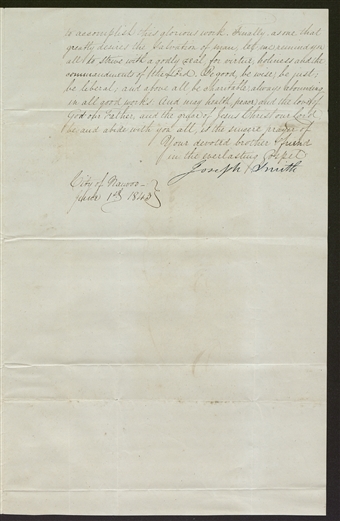 to accomplish this glorious work. Finally, as one that
greatly desires the salvation of man, let me remind you
all to strive with a godly zeal for virtue, holiness and the
commandments of the Lord. Be good, be wise; be just;
be liberal; and above all be charitable, always abounding
in all good works. And may health, peace and the love of
God our Father, and the grace of Jesus Christ our Lord
be, and abide with you all, is the sincere prayer of
Your devoted brother & friend
in the everlasting Gospel
Joseph Smith
City of Nauvoo
June 1st 1843